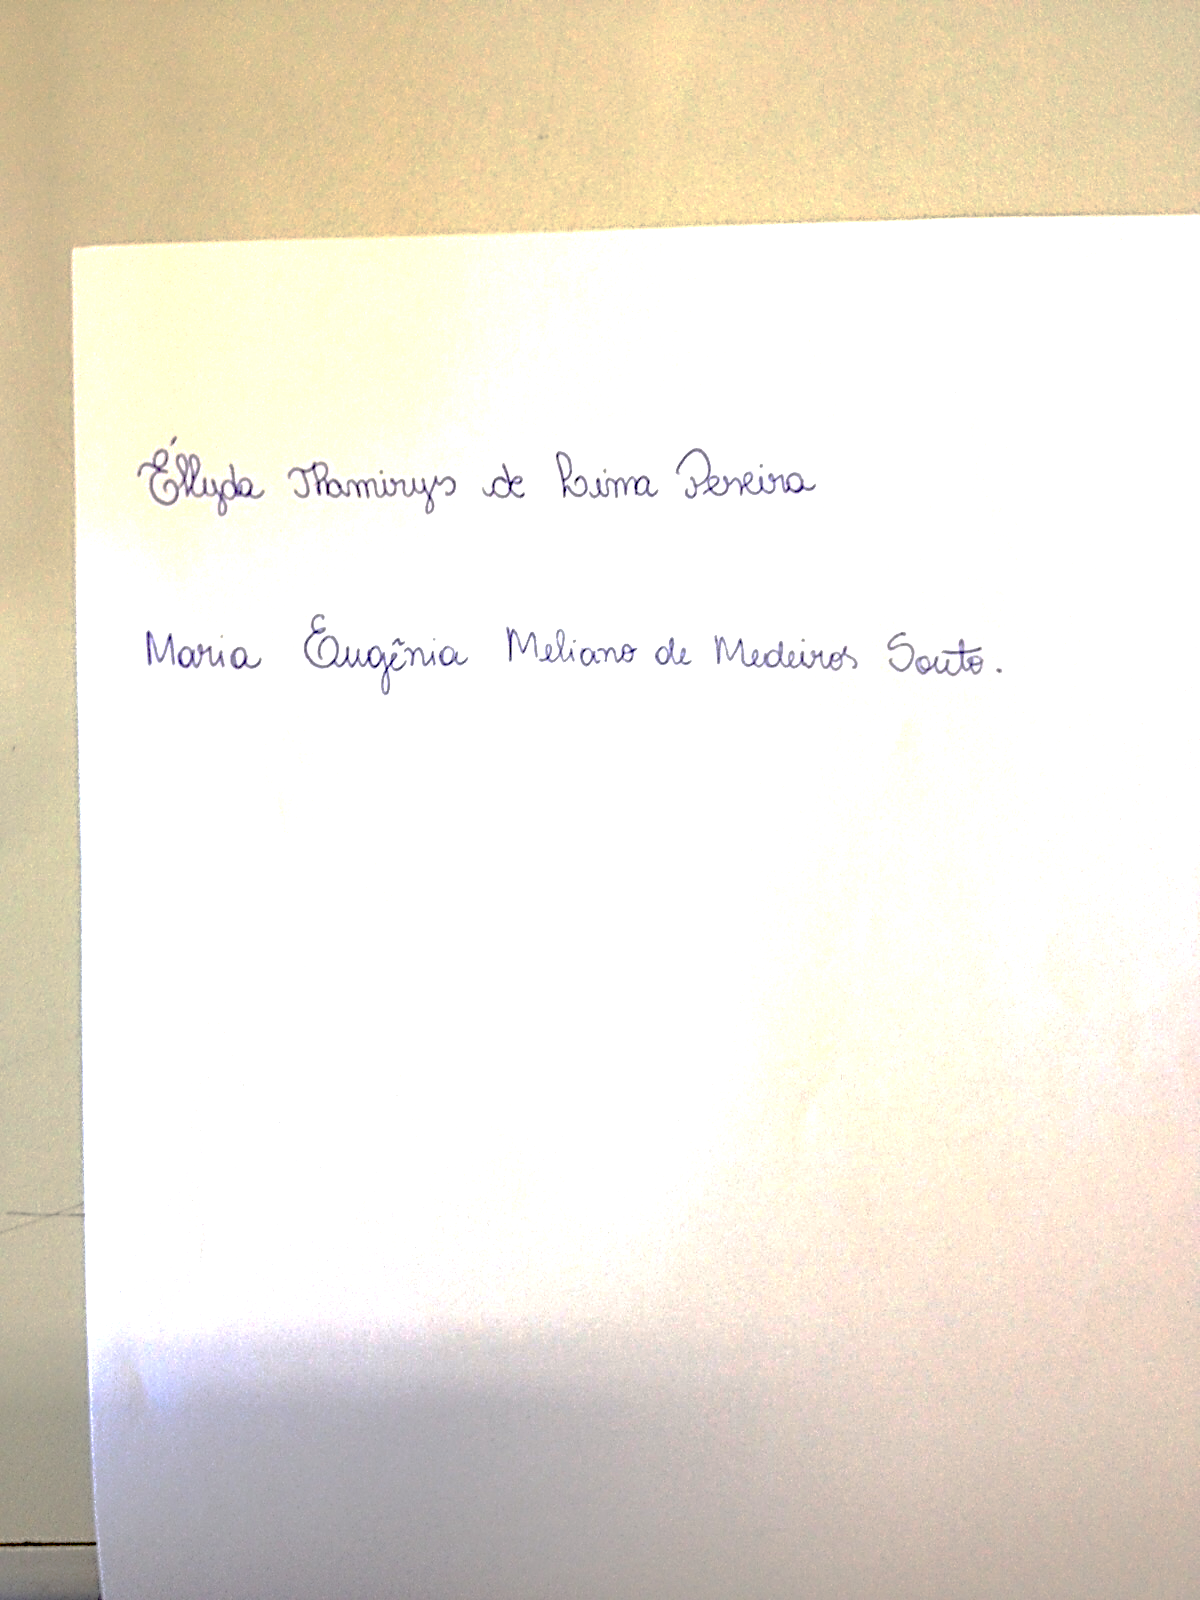 Éllyda Thamirys de Lima Pereira
Maria Eugênia Meliano de Medeiros Souto.